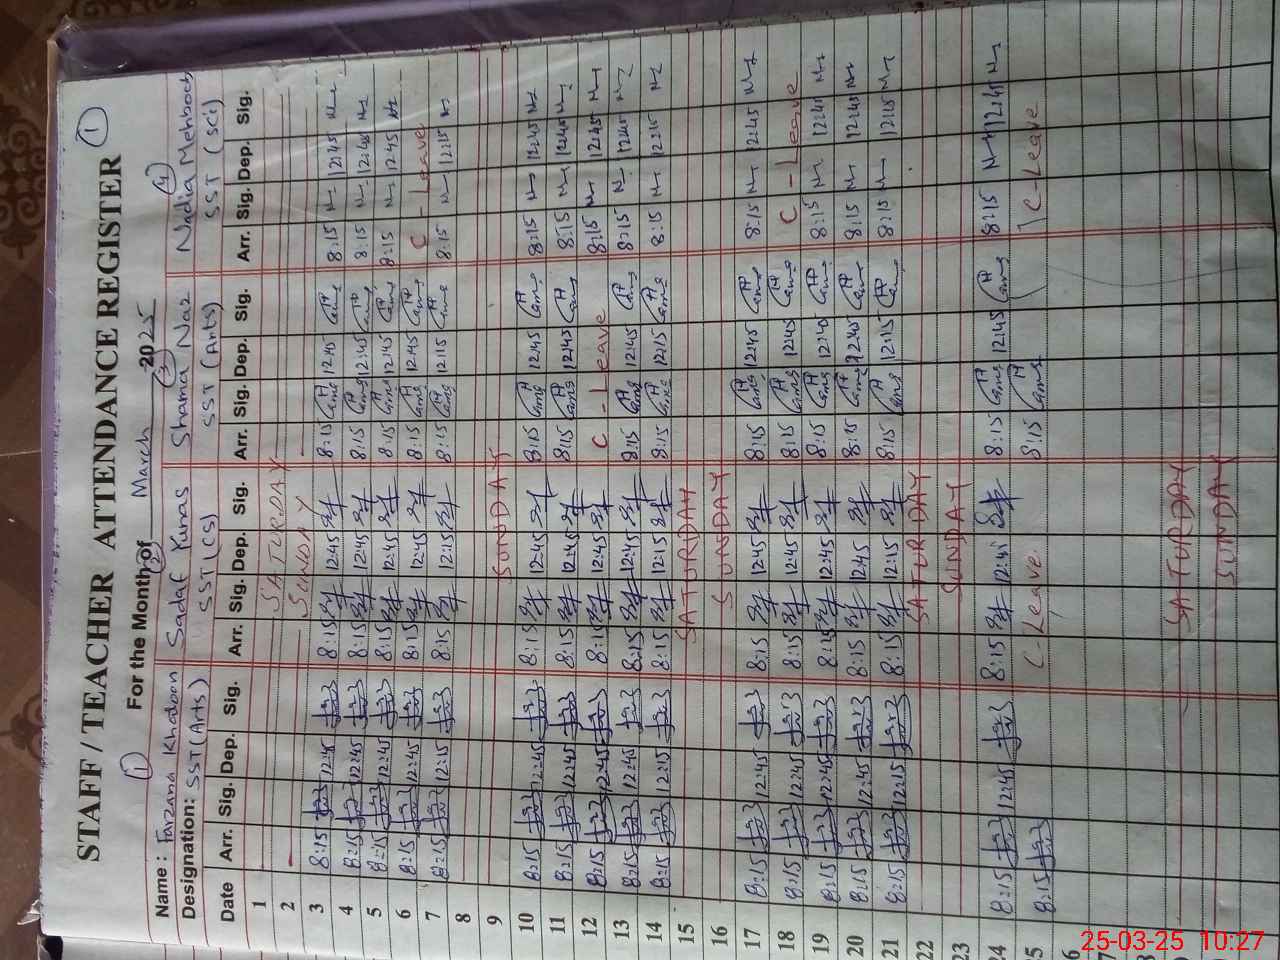 ①
STAFF / TEACHER ATTENDANCE REGISTER
For the Month of March 2025
① ② ③ ④
Name: Farzana Khatoon Sadaf Yunas Shama Naz Nadia Mehboob
Designation: SST (Arts) SST (CS) SST (Arts) SST (Sci)
Date Arr. Sig. Dep. Sig. Arr. Sig. Dep. Sig. Arr. Sig. Dep. Sig. Arr. Sig. Dep. Sig.
1 SATURDAY
2 SUNDAY
3 8:15 12:45 8:15 12:45 8:15 12:45 8:15 12:45
4 8:15 12:45 8:15 12:45 8:15 12:45 8:15 12:45
5 8:15 12:45 8:15 12:45 8:15 12:45 8:15 12:45
6 8:15 12:45 8:15 12:45 8:15 12:45 C - Leave
7 8:15 12:45 8:15 12:15 8:15 12:15 8:15 12:15
8
9 SUNDAY
10 8:15 12:45 8:15 12:45 8:15 12:45 8:15 12:45
11 8:15 12:45 8:15 12:45 8:15 12:45 8:15 12:45
12 8:15 12:45 8:15 12:45 C - Leave 8:15 12:45
13 8:15 12:45 8:15 12:45 8:15 12:45 8:15 12:45
14 8:15 12:15 8:15 12:15 8:15 12:15 8:15 12:15
15 SATURDAY
16 SUNDAY
17 8:15 12:45 8:15 12:45 8:15 12:45 8:15 12:45
18 8:15 12:45 8:15 12:45 8:15 12:45 C - Leave
19 8:15 12:45 8:15 12:45 8:15 12:45 8:15 12:45
20 8:15 12:45 8:15 12:45 8:15 12:45 8:15 12:45
21 8:15 12:15 8:15 12:15 8:15 12:15 8:15 12:15
22 SATURDAY
23 SUNDAY
24 8:15 12:45 8:15 12:45 8:15 12:45 8:15 12:45
25 8:15 C - Leave 8:15 C - Leave
SATURDAY
SUNDAY
25-03-25 10:27